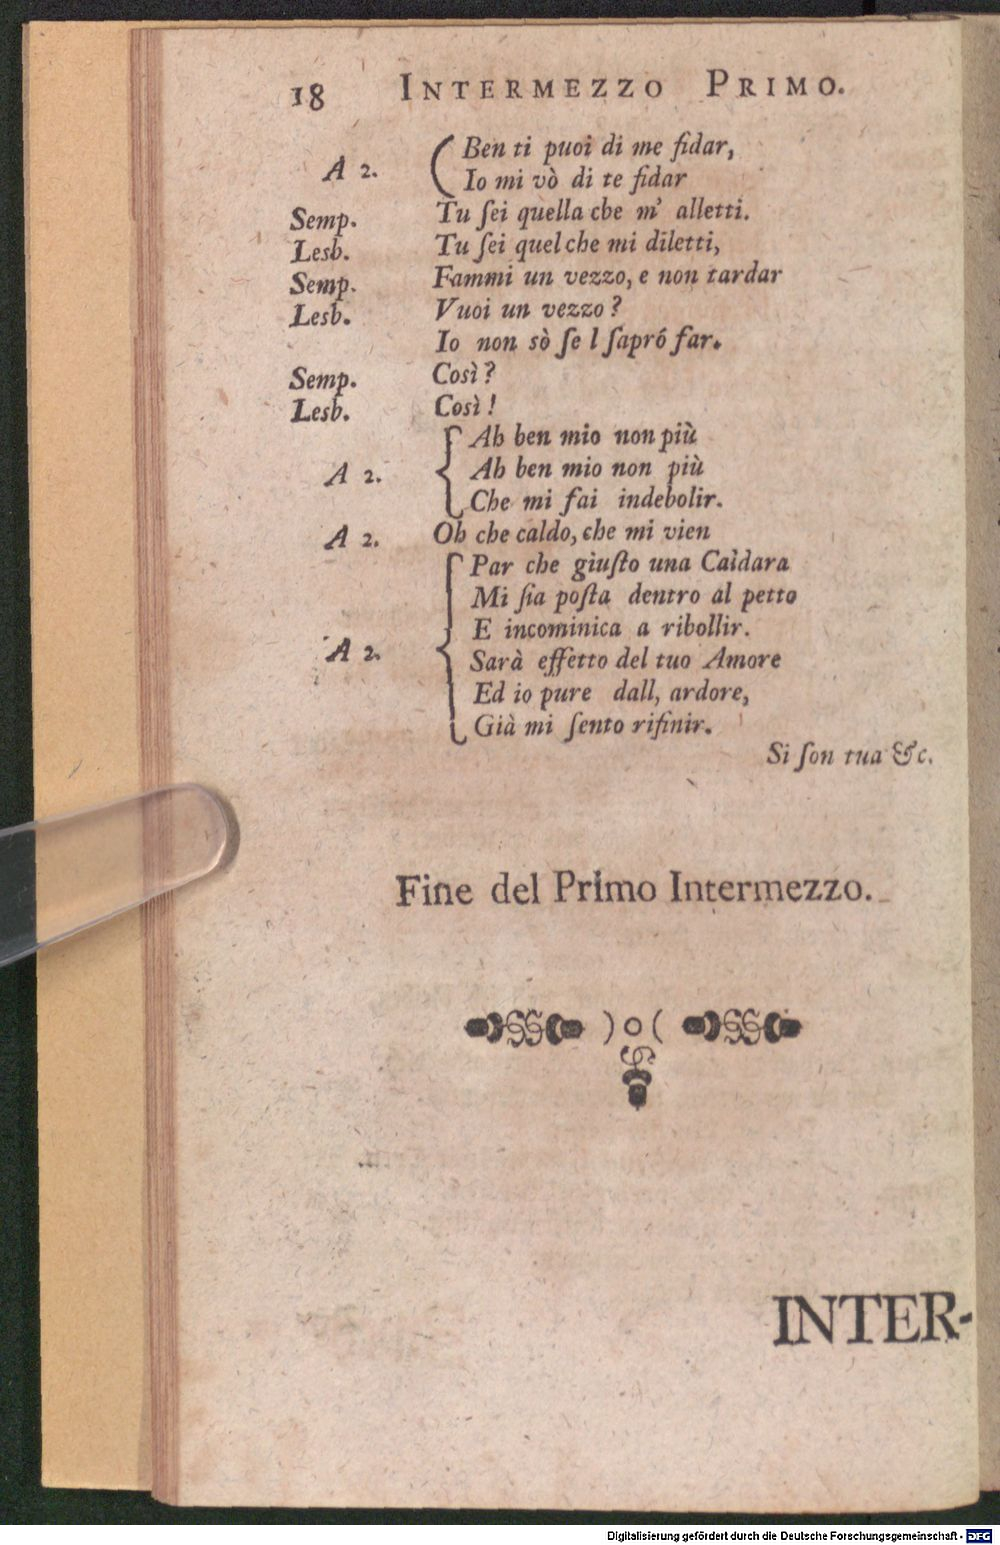 18 INTERMEZZO PRIMO.
Ben ti puoi di me fidar,
A 2.
Io mi vò di te fidar
Semp. Tu ſei quella che m' alletti.
Lesb. Tu ſei quel che mi diletti,
Semp. Fammi un vezzo, e non tardar
Lesb. Vuoi un vezzo?
Io non sò ſe l ſapró far.
Semp. Così?
Lesb. Così!
Ah ben mio non più
A 2. Ah ben mio non più
Che mi fai indebolir.
A 2. Oh che caldo, che mi vien
Par che giuſto una Caìdara
Mi ſia poſta dentro al petto
E incominica a ribollir.
A 2. Sarà effetto del tuo Amore
Ed io pure dall, ardore,
Già mi ſento rifinir.
Si ſon tua &c.
Fine del Primo Intermezzo.
)o(
INTER-
Digitalisierung gefördert durch die Deutsche Forschungsgemeinschaft - DFG